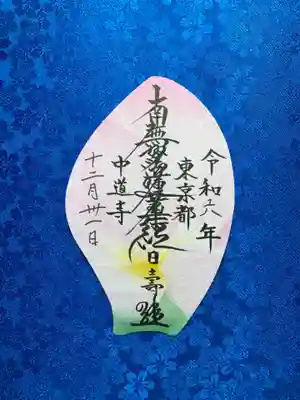 令和六年
東京都
南無妙法蓮華経
日壽
中道寺
十二月卅一日